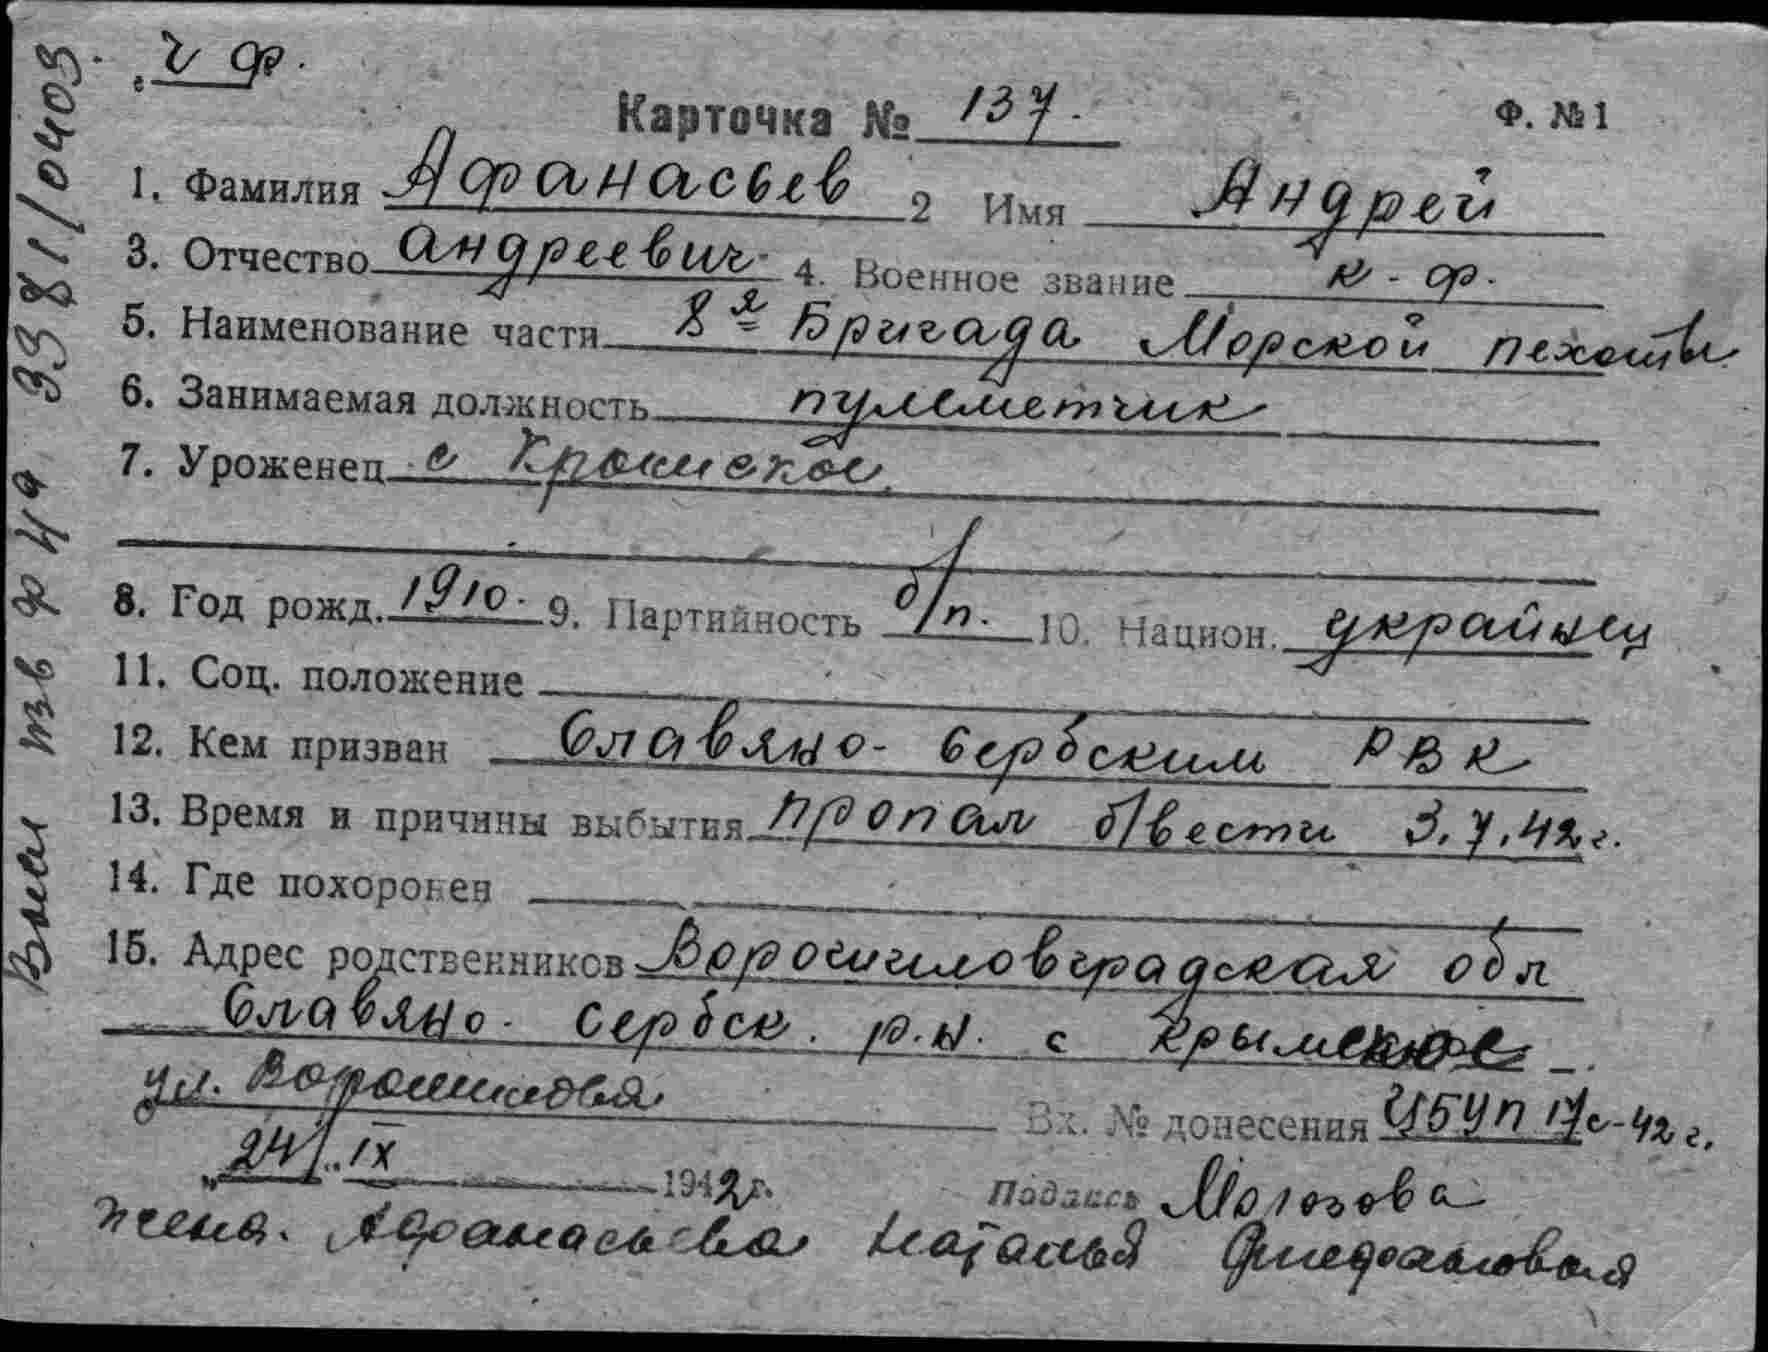 ч ф.
Карточка № 137.
Ф. №1
1. Фамилия Афанасьев 2 Имя Андрей
3. Отчество Андреевич 4. Военное звание к-ф.
5. Наименование части 8я Бригада Морской пехоты
6. Занимаемая должность пулеметчик
7. Уроженец с Кромиское
8. Год рожд. 1910. 9. Партийность б/п. 10. Национ. украинец
11. Соц. положение
12. Кем призван Славяно-Сербским РВК
13. Время и причины выбытия пропал б/вести 3.7.42г.
14. Где похоронен
15. Адрес родственников Ворошиловградская обл
Славяно-Сербск. р.н. с Крымское
ул. Ворошилова
Вх. № донесения 17с-42г.
"24" IX 1942г.
Подпись Морозова
жена. Афанасьева Наталья